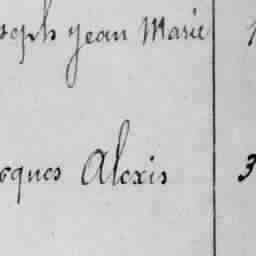 soph Jean Marie 1
cques Alexis 3